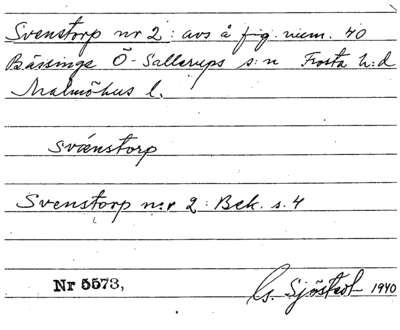 Svenstorp nr 2: avs å fig. num. 40
Bässinge Ö-Sallerups s:n Frosta h:d
Malmöhus l.
svænstorp
Svenstorp nr 2: Bek. s. 4
Nr 5573, Gs. Sjöstrol 1940